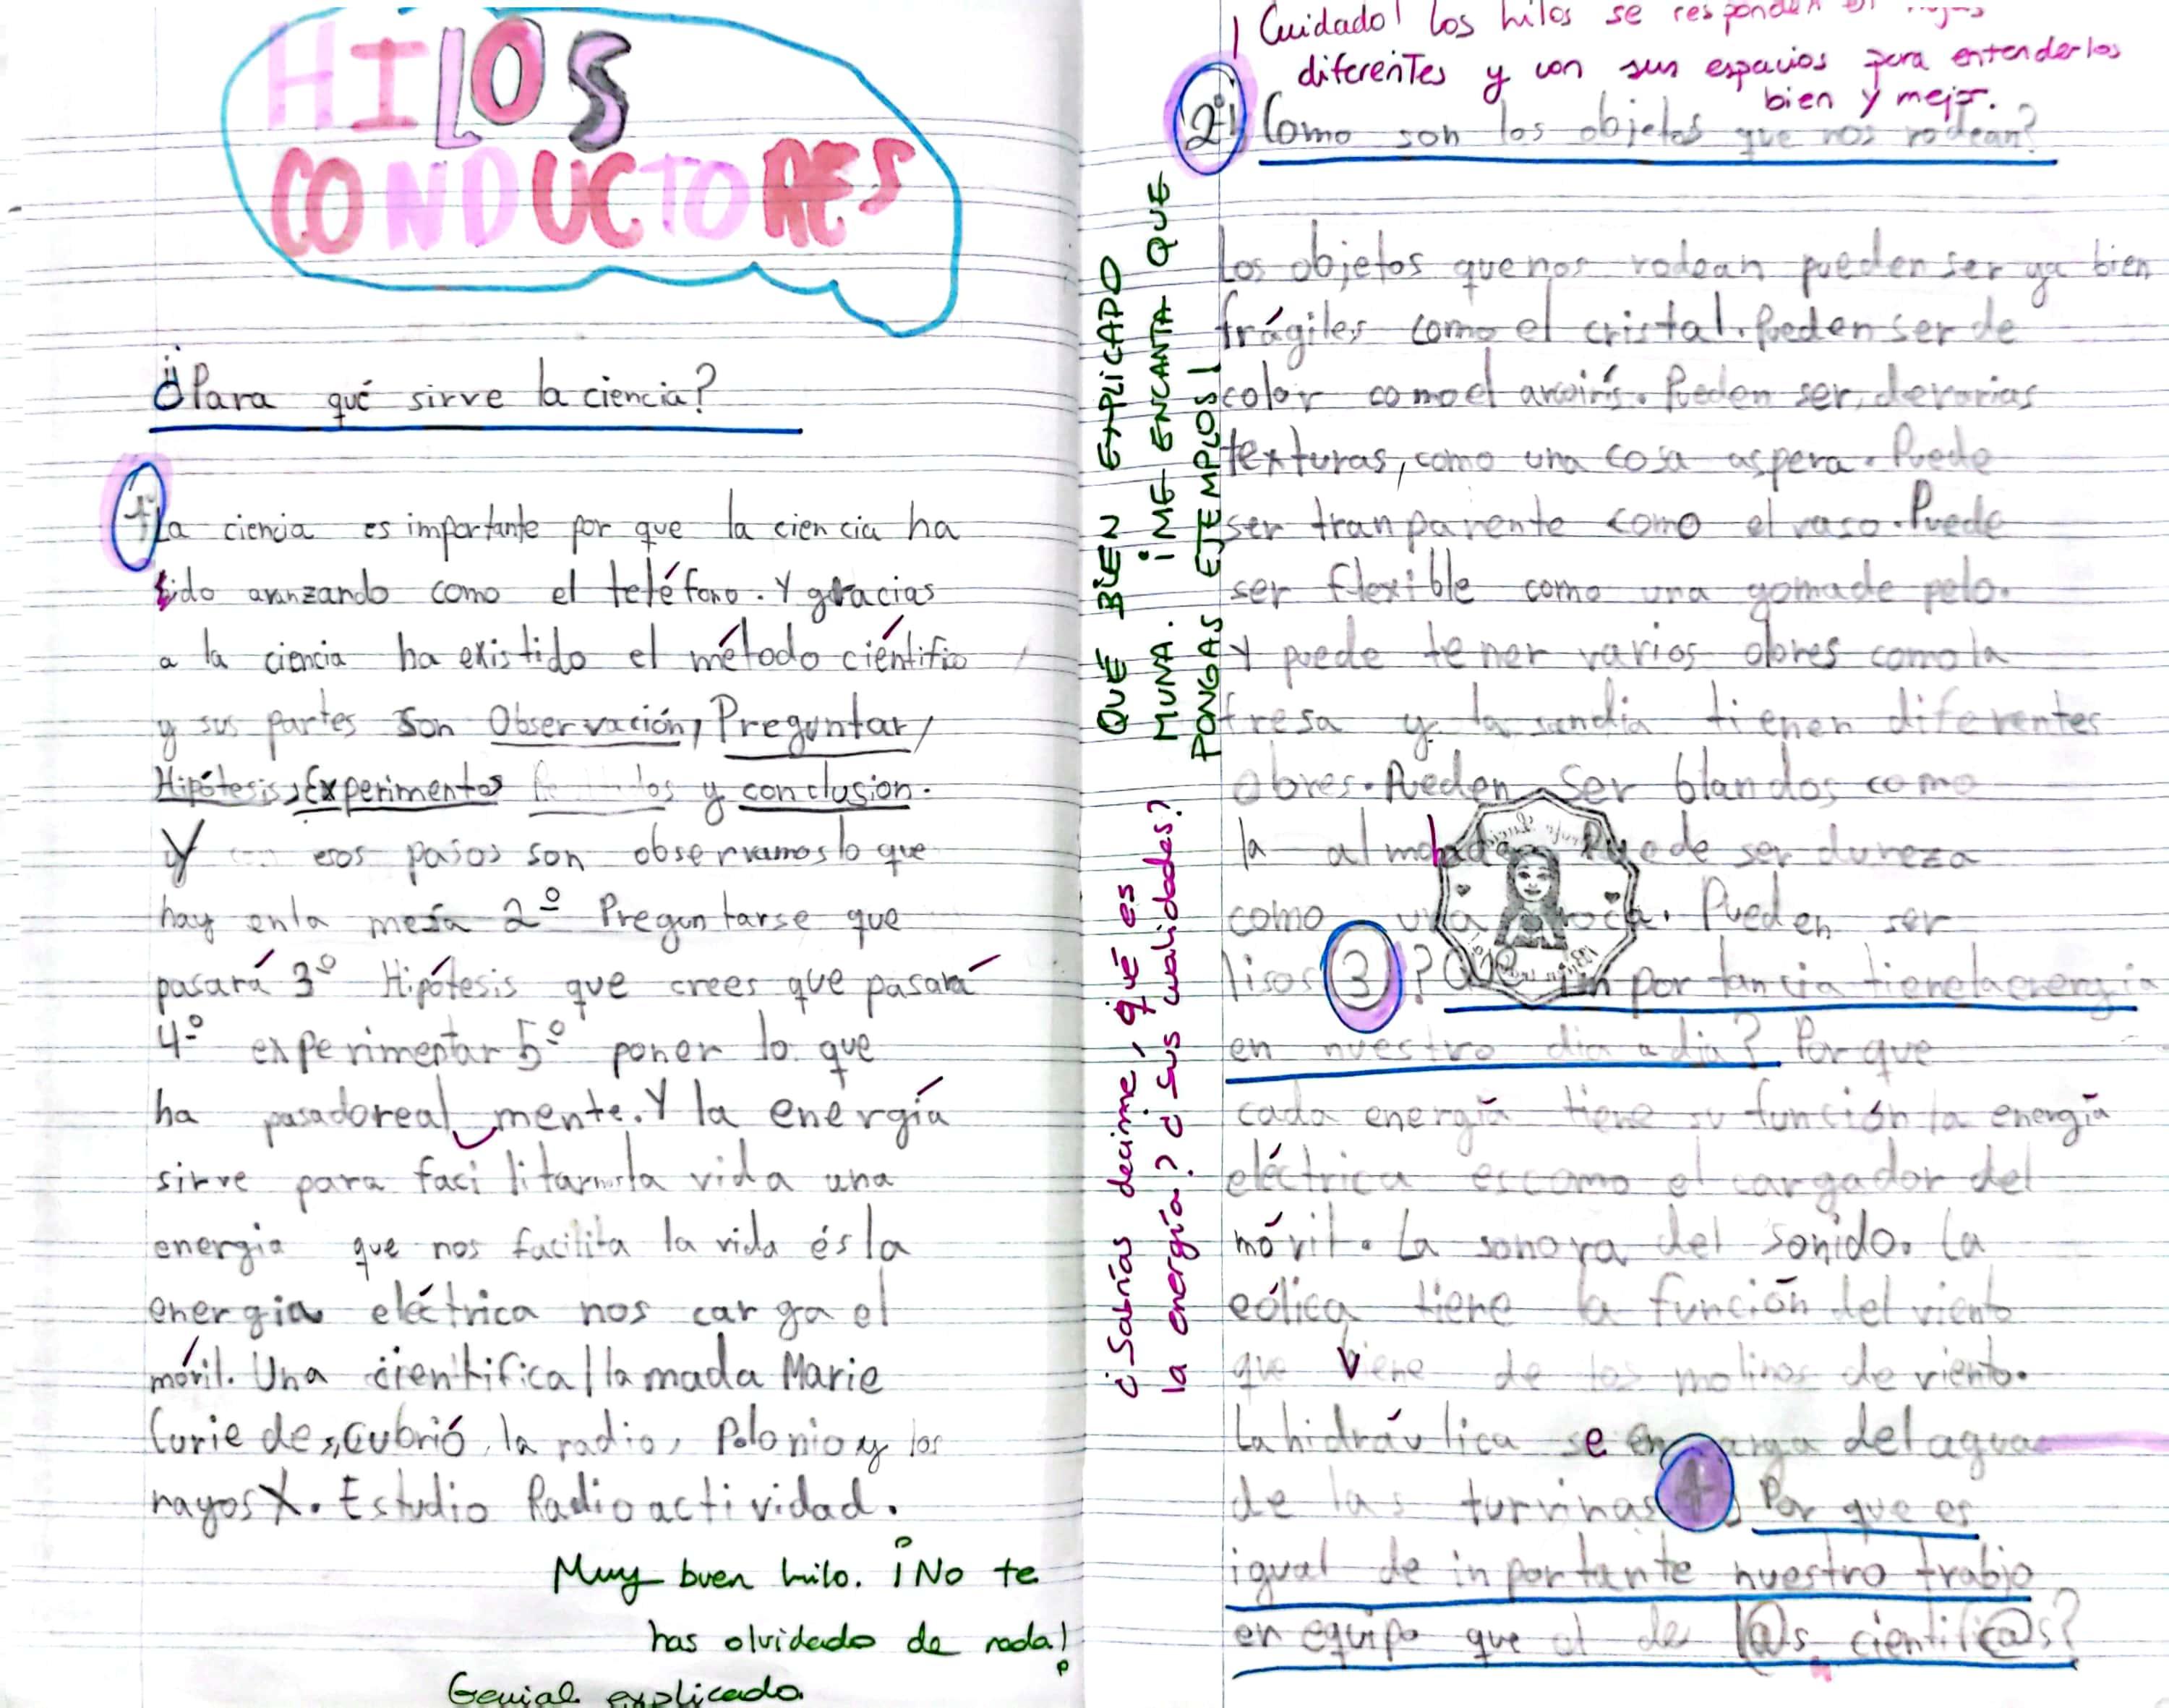 HILOS
CONDUCTORES
¿Para qué sirve la ciencia?
1º La ciencia es importante por que la ciencia ha
sido avanzando como el teléfono. Y gracias
a la ciencia ha existido el método ciéntifico
y sus partes son Observación, Preguntar,
Hipótesis, Experimentos y conclusion.
Y esos pasos son observamos lo que
hay enla mesa 2º Preguntarse que
pasará 3º Hipótesis que crees que pasará
4º experimentar 5º poner lo que
ha pasadoreal mente. Y la energía
sirve para faci litarnosla vida una
energia que nos facilita la vida ésla
energia eléctrica nos carga el
móvil. Una cientifica llamada Marie
Curie descubrió la radio, Polonio y los
rayos X. Estudio Radioactividad.
Muy buen hilo. ¡No te
has olvidado de nada!
Genial explicado
QUÉ BIEN EXPLICADO
MUNA. ¡ME ENCANTA QUE
PONGAS EJEMPLOS!
¿Sabrías decirme, qué es
la energía? ¿sus cualidades?
¡Cuidado! los hilos se responden
diferentes y con sus espacios para entenderlos
bien y mejor.
2º Como son los objetos que nos rodean?
Los objetos quenos rodean pueden ser ya bien
frágiles como el cristal. Pueden ser de
color como el arcoirís. Pueden ser, devarias
texturas, como una cosa aspera. Puede
ser tranparente como el vaso. Puede
ser flexible como una gomade pelo.
Y puede tener varios olores como la
fresa y la sandia tienen diferentes
olores. Pueden ser blandos como
la almohada. Puede ser dureza
como una roca. Pueden ser
lisos 3 ? Que inportancia tienelaenergia
en nuestro dia a dia? Porque
cada energía tiene su función la energía
eléctrica escomo el cargador del
móvil. La sonora del sonido. La
eólica tiene la función del viento
que viene de los molinos de viento.
La hidráulica se encarga del agua
de las turvinas 4 Por que es
igual de inportante nuestro trabjo
en equipo que el de l@s cientific@s?